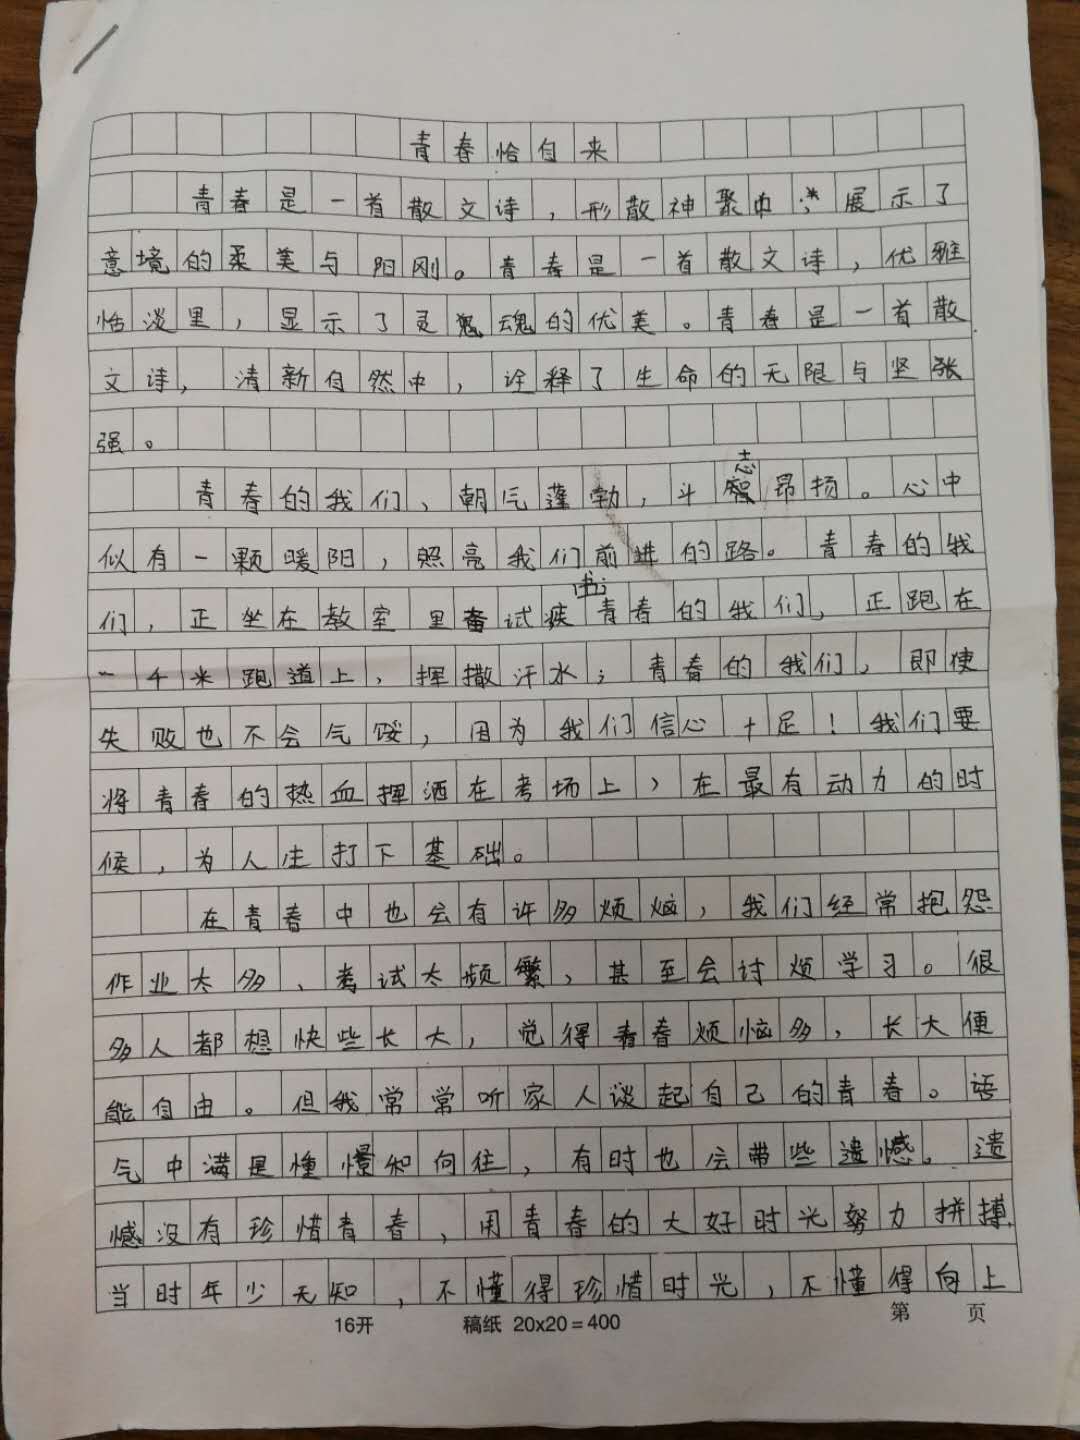 青春恰自来
青春是一首散文诗，形散神聚中，展示了
意境的柔美与阳刚。青春是一首散文诗，优雅
恬淡里，显示了灵魂的优美。青春是一首散
文诗，清新自然中，诠释了生命的无限与坚
强。
青春的我们、朝气蓬勃，斗志昂扬。心中
似有一颗暖阳，照亮我们前进的路。青春的我
们，正坐在教室里奋试疾书；青春的我们，正跑在
一千米跑道上，挥撒汗水；青春的我们，即使
失败也不会气馁，因为我们信心十足！我们要
将青春的热血挥洒在考场上，在最有动力的时
候，为人生打下基础。
在青春中也会有许多烦恼，我们经常抱怨
作业太多、考试太频繁，甚至会讨烦学习。很
多人都想快些长大，觉得青春烦恼多，长大便
能自由。但我常常听家人谈起自己的青春。语
气中满是憧憬和向往，有时也会带些遗憾。遗
憾没有珍惜青春，用青春的大好时光努力拼搏，
当时年少无知，不懂得珍惜时光，不懂得向上
16开 稿纸 20x20=400 第 页